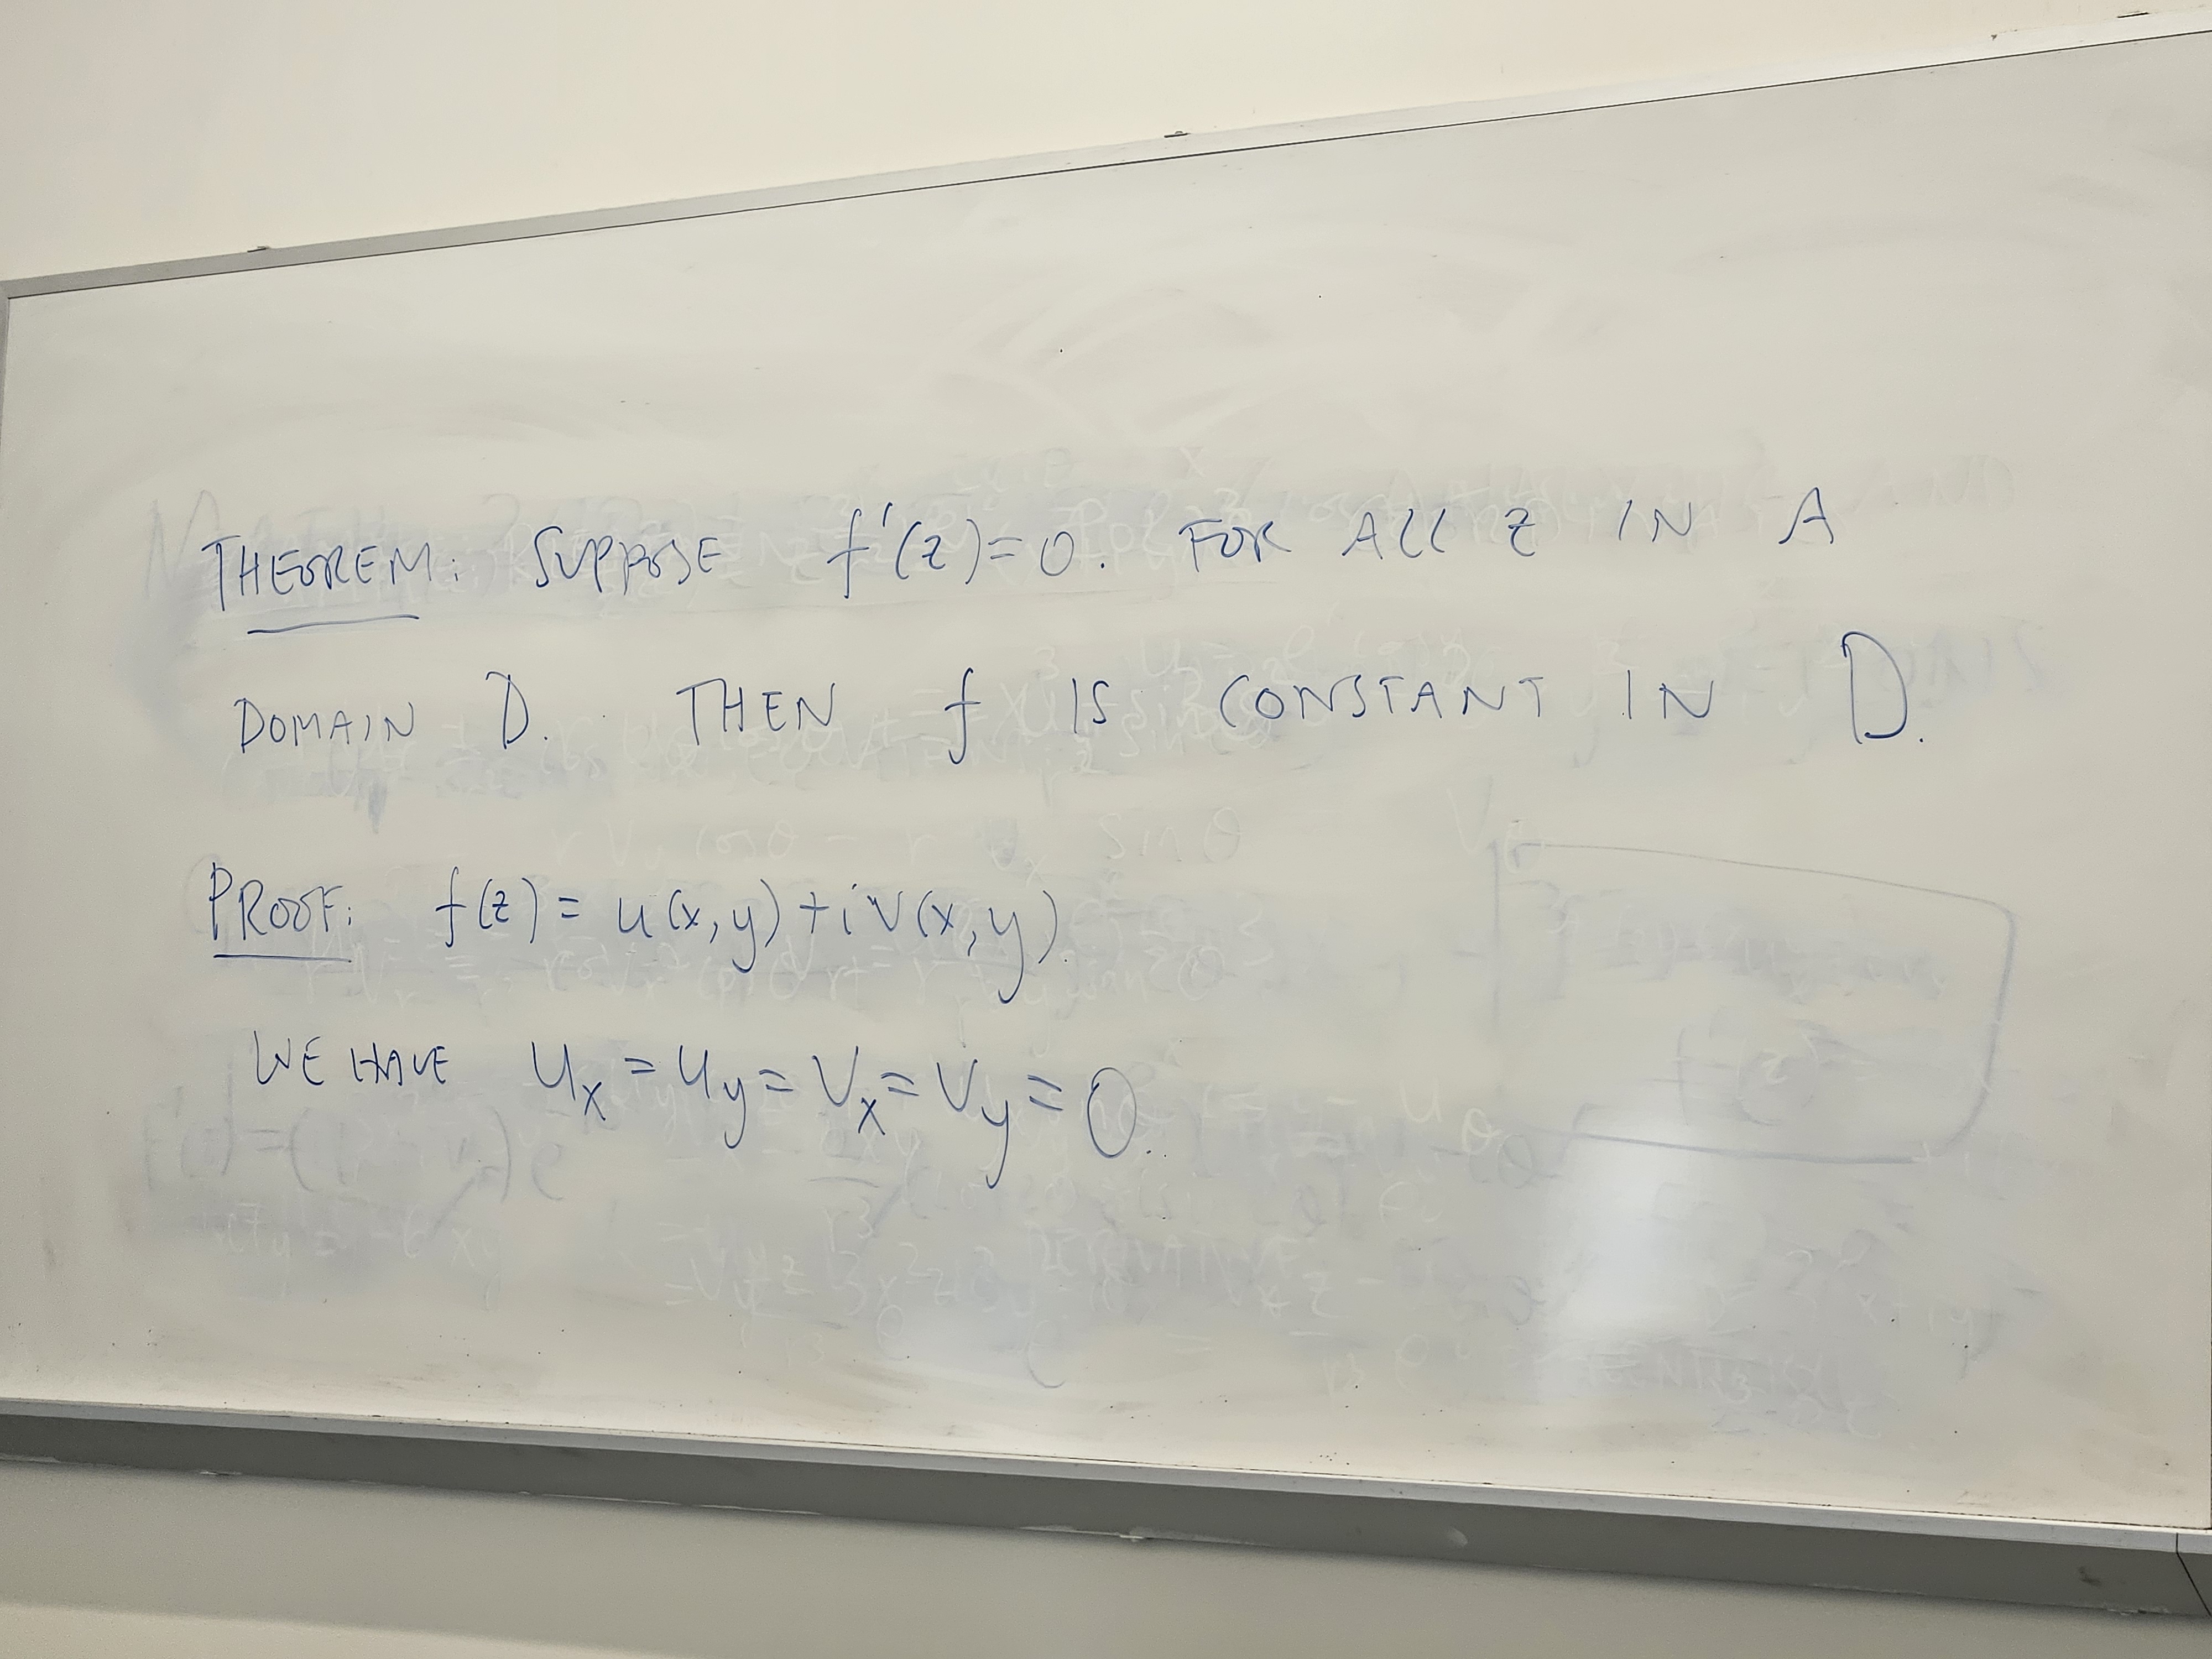 THEOREM: SUPPOSE f'(z)=0. FOR ALL z IN A
DOMAIN D. THEN f IS CONSTANT IN D.
PROOF: f(z) = u(x,y) + iv(x,y).
WE HAVE u_x = u_y = v_x = v_y = 0.